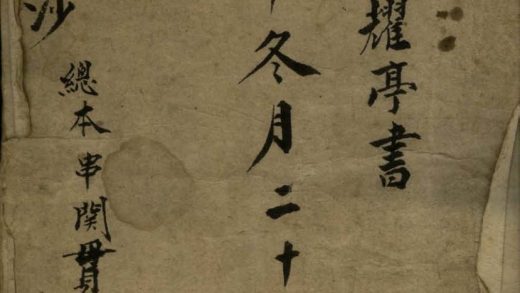 耀亭書
冬月二十
沙
總本串関貫